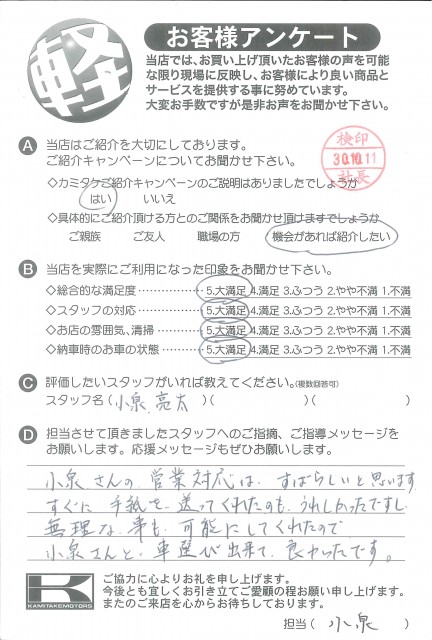 軽
お客様アンケート
当店では、お買い上げ頂いたお客様の声を可能
な限り現場に反映し、お客様により良い商品と
サービスを提供する事に努めています。
大変お手数ですが是非お声をお聞かせ下さい。
A 当店はご紹介を大切にしております。
ご紹介キャンペーンについてお聞かせ下さい。
検印
30.10.11
社長
◇カミタケご紹介キャンペーンのご説明はありましたでしょうか
はい いいえ
◇具体的にご紹介頂ける方とのご関係をお聞かせ頂けますでしょうか
ご親族 ご友人 職場の方 機会があれば紹介したい
B 当店を実際にご利用になった印象をお聞かせ下さい。
◇総合的な満足度………………5.大満足 4.満足 3.ふつう 2.やや不満 1.不満
◇スタッフの対応………………5.大満足 4.満足 3.ふつう 2.やや不満 1.不満
◇お店の雰囲気、清掃…………5.大満足 4.満足 3.ふつう 2.やや不満 1.不満
◇納車時のお車の状態…………5.大満足 4.満足 3.ふつう 2.やや不満 1.不満
C 評価したいスタッフがいれば教えてください。(複数回答可)
スタッフ名(小泉 亮太)( )( )
D 担当させて頂きましたスタッフへのご指摘、ご指導メッセージを
お願いします。応援メッセージもぜひお願いします。
小泉さんの 営業対応は、すばらしいと思います
すぐに 手紙を 送ってくれたのも、うれしかったですし
無理な 事も 可能にしてくれたので
小泉さんと 車選び出来て、良かったです。
K
KAMITAKEMOTORS
ご協力に心よりお礼を申し上げます。
今後とも宜しくお引き立てご愛顧の程お願い申し上げます。
またのご来店を心からお待ちしております。
担当( 小泉 )